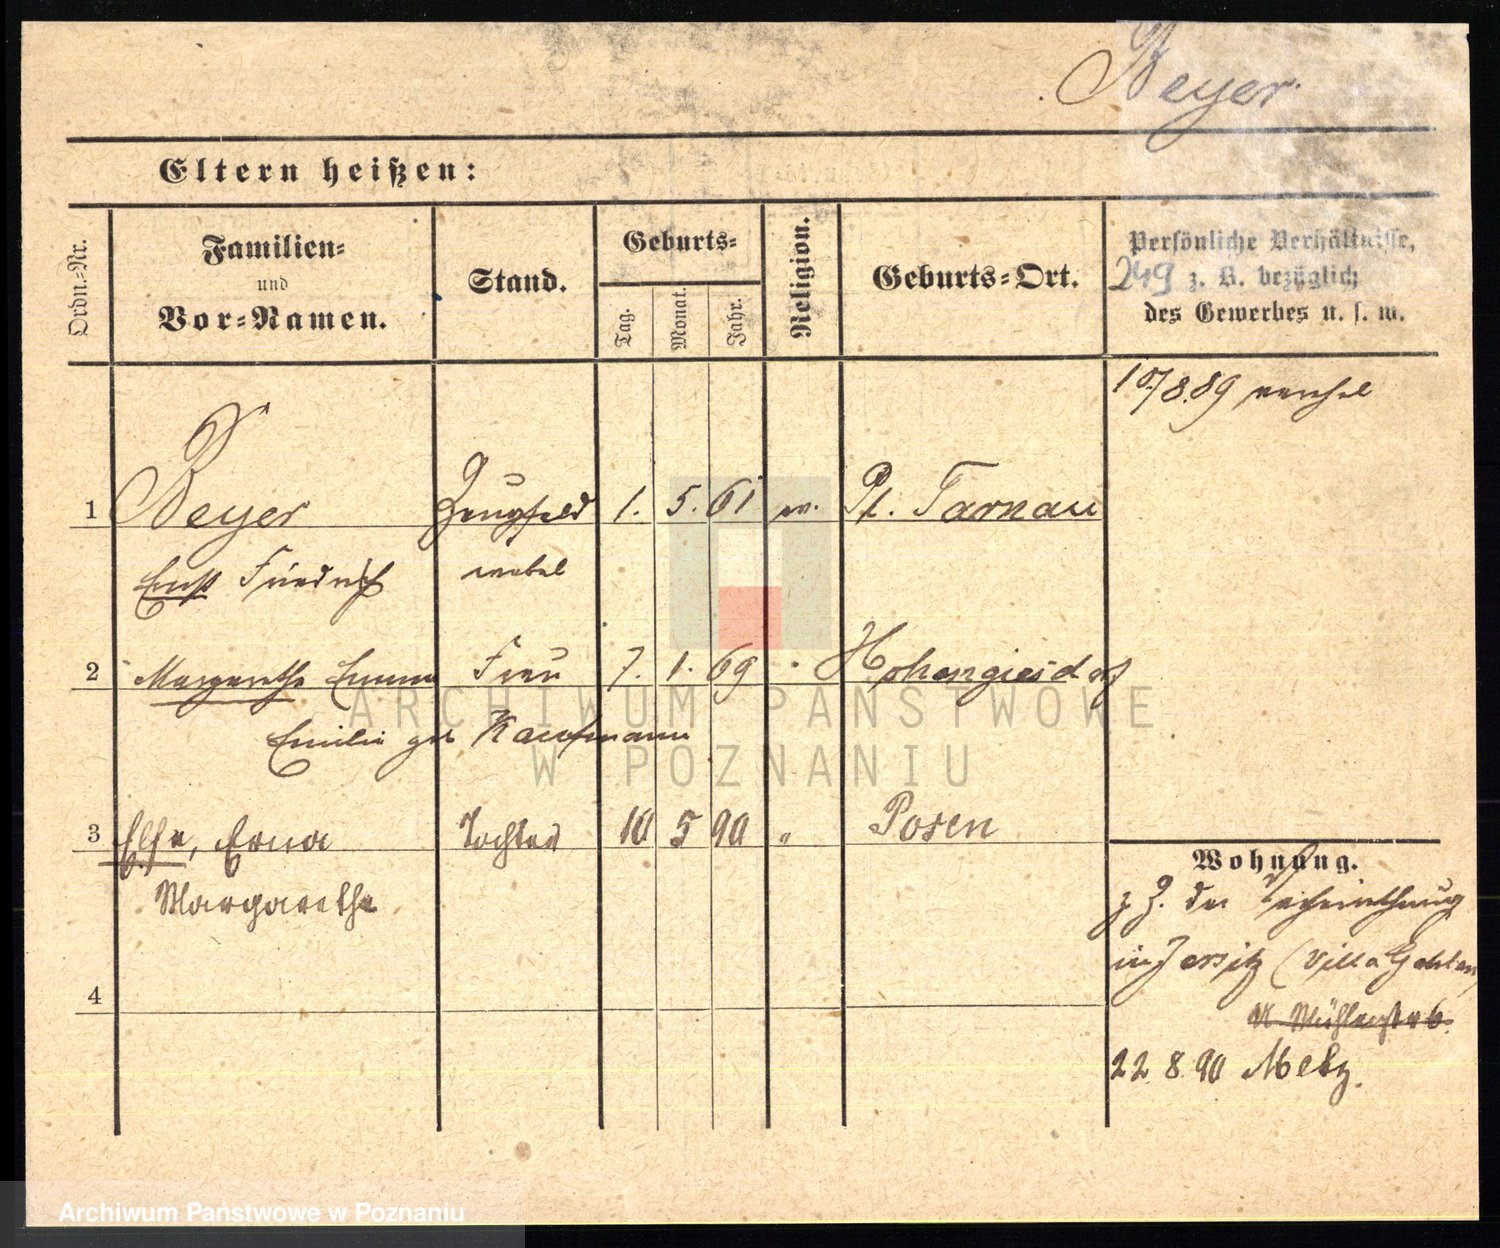 Beyer.
Eltern heißen:
Ordn.-Nr.
Familien-
und
Vor-Namen.
Stand.
Geburts-
Tag.
Monat.
Jahr.
Religion.
Geburts-Ort.
Persönliche Verhältnisse,
249 z. B. bezüglich
des Gewerbes u. s. w.
10/8.89
1 Beyer Zeugfeld 1. 5. 61 ev. Pl. Tarnau
Ernst Friedrich webel
2 Margarethe Emma Frau 7. 1. 69 " Hohengiersdorf
Emilie geb Kaufmann
3 Else, Erna Tochter 10 5 90 " Posen
Margarethe
4
Wohnung.
z. Z. der Verheirathung
in Jersitz (Villa Gehlen
Mühlenstr 6.
22. 8. 90 Metz.
ARCHIWUM PAŃSTWOWE
W POZNANIU
Archiwum Państwowe w Poznaniu